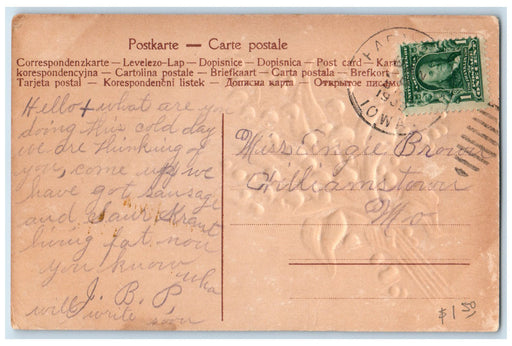 Postkarte — Carte postale
Correspondenzkarte — Levelezo-Lap — Dopisnice — Dopisnica — Post card — Kar
korespondencyjna — Cartolina postale — Briefkaart — Carta postala — Brefkor
Tarjeta postal — Korespondenční listek — Дописна карта — Открытое письмо
Hello + what are you
doing this cold day
we are thinking of
you, come up we
have got sausage
and Saur Kraut
living fat now
you know who
J. B. P.
will write soon
Miss Angie Brown
Williamstown
Mo
IOWA
$1 50